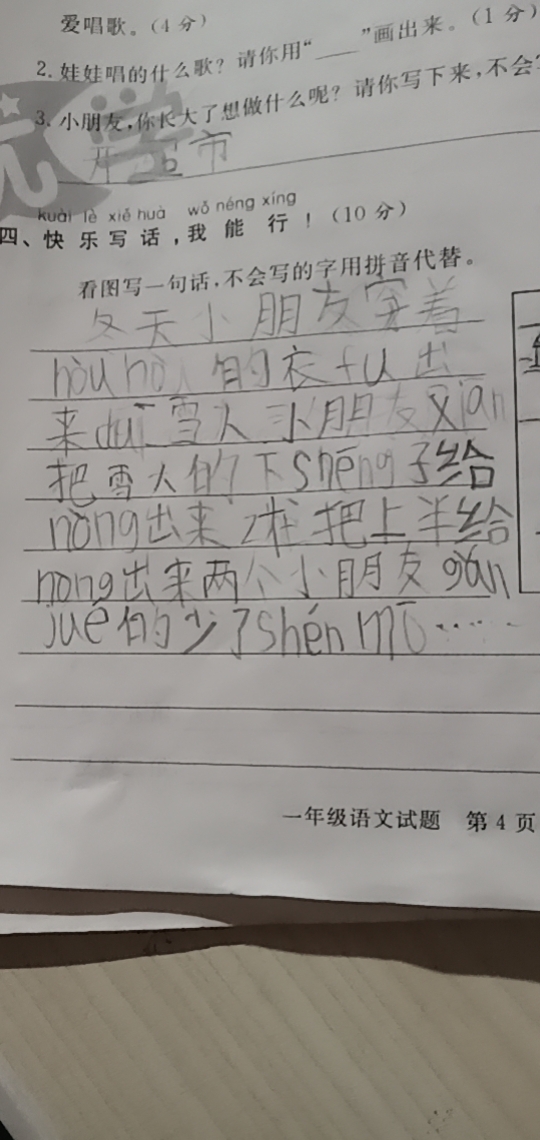 爱唱歌。(4分)
2. 娃娃唱的什么歌？请你用“____”画出来。(1分)
3. 小朋友,你长大了想做什么呢？请你写下来,不会
开召市
kuài lè xiě huà wǒ néng xíng
四、快乐写话,我能行！(10分)
看图写一句话,不会写的字用拼音代替。
冬天小朋友穿着
hòu 的衣fu出
来duī雪人 小朋友xian
把雪人的下shēng子给
nòng出来 把上半给
nong出来两个小朋友gǎn
jué的少了shén mō……
一年级语文试题 第4页